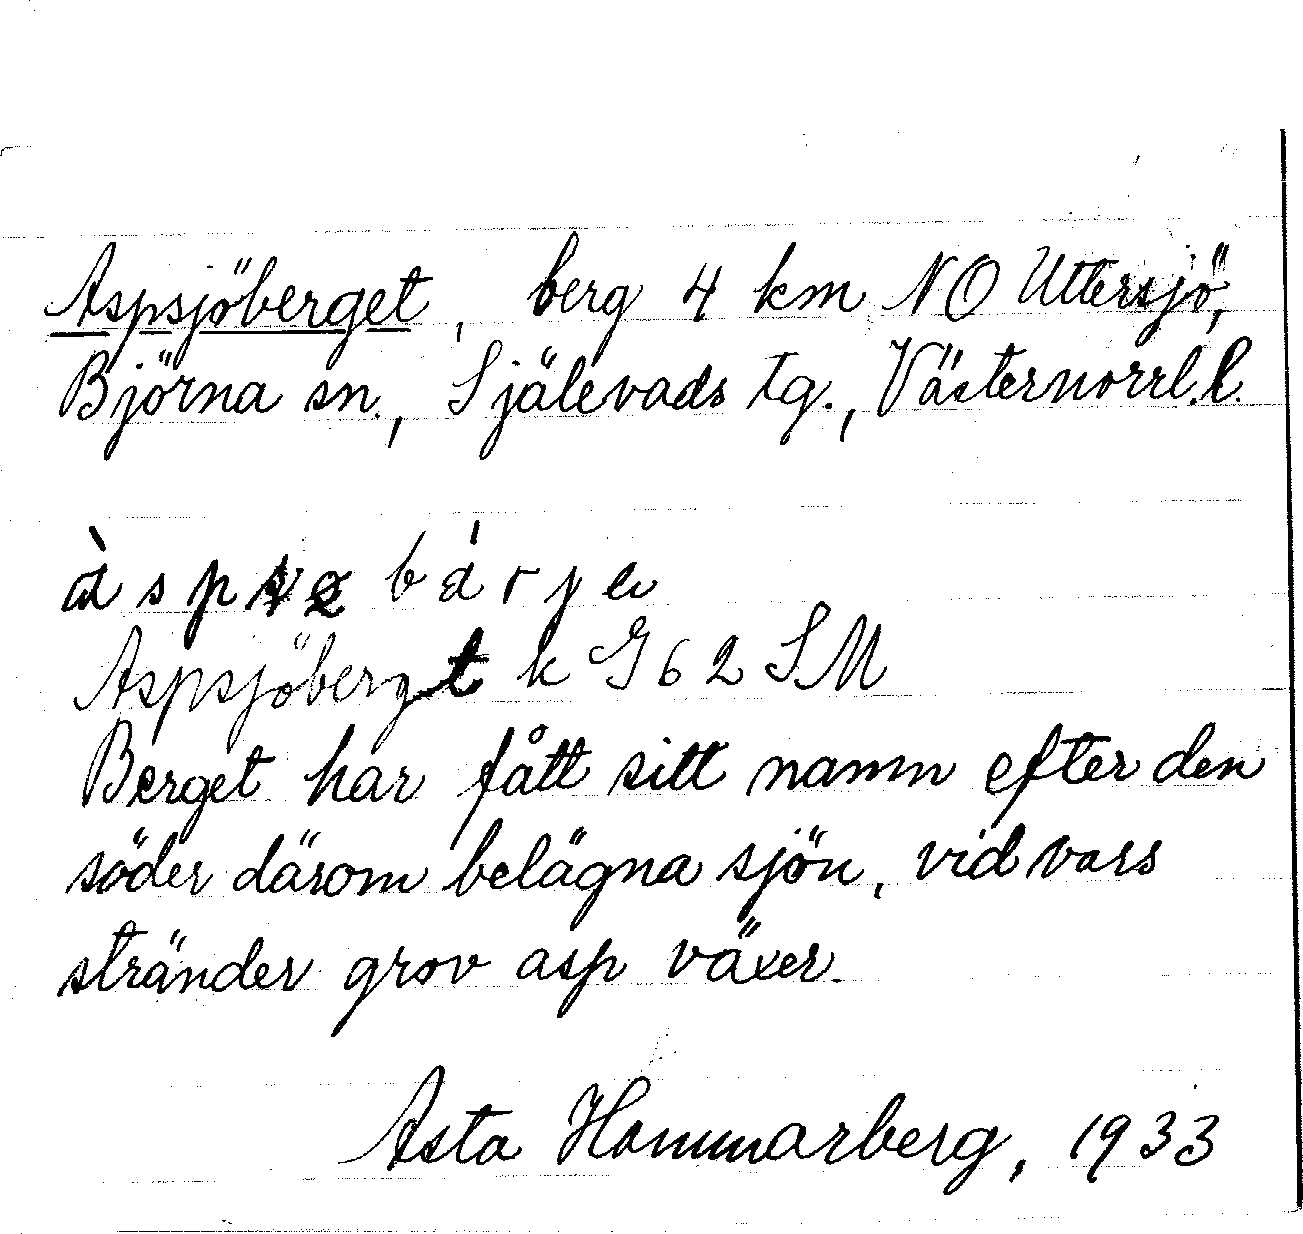 Aspsjöberget, berg 4 km NO Uttersjö,
Björna sn., Själevads tg., Västernorrl. l.
bárje
Aspsjöbergt k G 62 SM
Berget har fått sitt namn efter den
söder därom belägna sjön, vid vars
stränder grov asp växer.
Asta Hammarberg, 1933